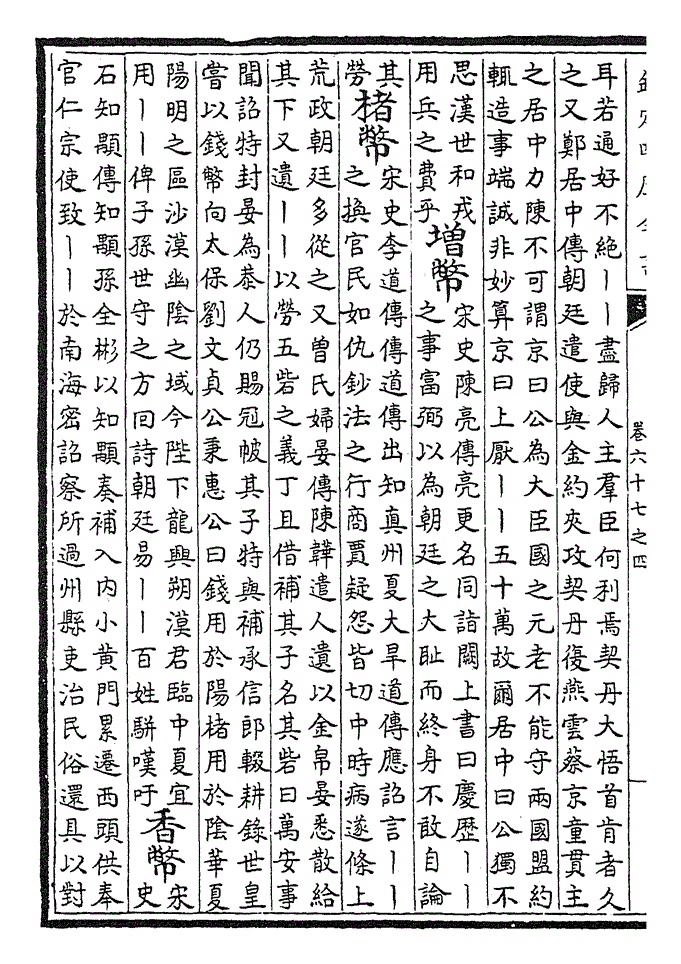 欽定四庫全書
卷六十七之四
耳若通好不絕丨丨盡歸人主羣臣何利焉契丹大悟首肯者久
之又鄭居中傳朝廷遣使與金約夾攻契丹復燕雲蔡京童貫主
之居中力陳不可謂京曰公為大臣國之元老不能守兩國盟約
輒造事端誠非妙算京曰上厭丨丨五十萬故爾居中曰公獨不
思漢世和戎
用兵之費乎
增幣
宋史陳亮傳亮更名同詣闕上書曰慶歴丨丨
之事富弼以為朝廷之大耻而終身不敢自論
其
勞
楮幣
宋史李道傳傳道傳出知真州夏大旱道傳應詔言丨丨
之換官民如仇鈔法之行商賈疑怨皆切中時病遂條上
荒政朝廷多從之又曾氏婦晏傳陳韡遣人遺以金帛晏悉散給
其下又遺丨丨以勞五砦之義丁且借補其子名其砦曰萬安事
聞詔特封晏為恭人仍賜冠帔其子特與補承信郎輟耕錄世皇
嘗以錢幣向太保劉文貞公秉惠公曰錢用於陽楮用於陰華夏
陽明之區沙漠幽陰之域今陛下龍興朔漠君臨中夏宜
用丨丨俾子孫世守之方回詩朝廷易丨丨百姓駢嘆吁
香幣
宋
史
石知顒傳知顒孫全彬以知顒奏補入内小黄門累遷西頭供奉
官仁宗使致丨丨於南海密詔察所過州縣吏治民俗還具以對